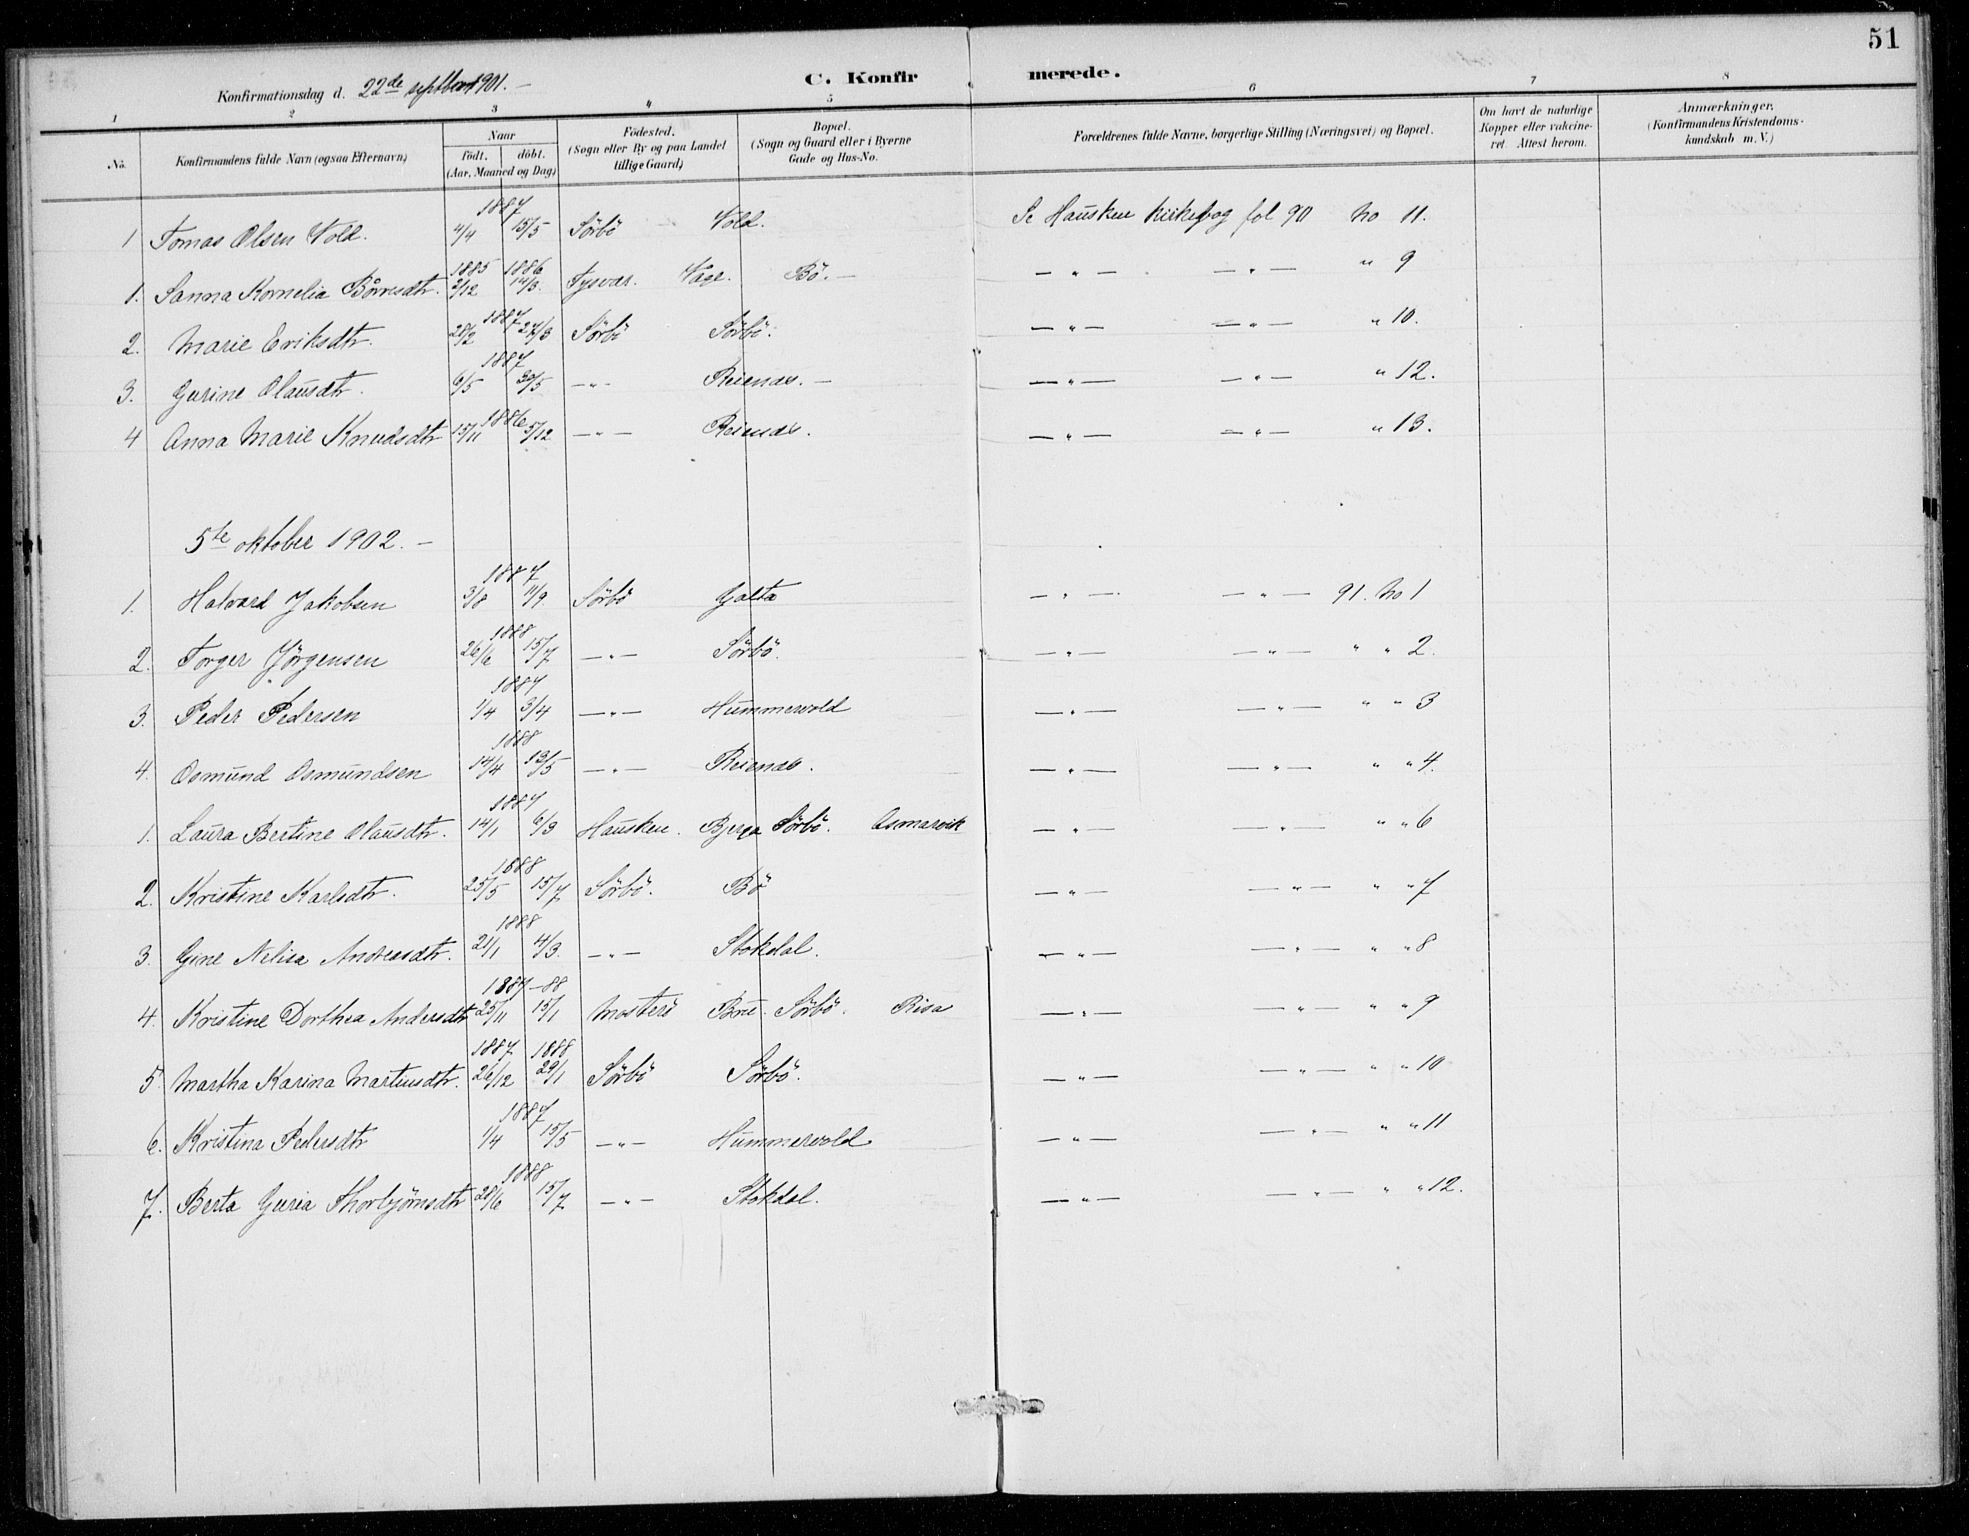 51
Konfirmationsdag d. 22de septber 1901. –
C. Konfirmerede.
1 2 3 4 5 6 7 8
No. Konfirmandens fulde Navn (ogsaa Efternavn) Naar födt. döbt. (Aar, Maaned og Dag) Födested. (Sogn eller By og paa Landet tillige Gaard) Bopæl. (Sogn og Gaard eller i Byerne Gade og Hus-No. Forældrenes fulde Navne, borgerlige Stilling (Næringsvei) og Bopæl. Om havt de naturlige Kopper eller vakcineret. Attest herom. Anmærkninger. (Konfirmandens Kristendomskundskab m. V.)
1887
1 Tomas Olsen Vold. 4/4 15/5 Sörbö Vold. Se Hausken kirkebog fol 90 no 11.
1885 1886
1. Sanna Kornelia Börresdtr. 2/12 14/3. Tysvær. Våge. Bö. – – " – – " – " 9
1887
2. Marie Eriksdtr. 28/2 27/3 Sörbö Sörbö. – " – – " – " 10.
1887
3. Gurine Olausdtr. 6/5 30/5 – " – Reienæs. – – " – – " – " 12.
1886
4 Anna Marie Knudsdtr 15/11 5/12 – " – Reienæs. – " – – " – " 13.
5te oktober 1902. –
1887
1. Halvard Jakobsen 3/8 11/9 Sörbö Galta – " – – " – 91. no 1
1888
2. Torger Jörgensen 26/6 15/7 – " – Sörbö. – " – – " – " " 2.
1887
3. Peder Pedersen 1/4 3/4 – " – Hummervold – " – – " – " " 3
1888
4. Osmund Osmundsen 14/4 13/5 – " – Reienæs. – " – – " – " " 4.
1887
1. Laura Bertine Olausdtr. 14/1 6/3 Hausken. Bjerga Sörbö. Asmarvik – " – – " – " " 6
1888
2. Kristine Karlsdtr. 25/5 15/7 Sörbö. Bö – " – – " – " " 7
1888
3. Gine Nelisa Andreasdtr. 21/1 4/3. – " – Stokdal. – " – – " – " " 8
1887–88
4. Kristine Dorthea Andersdtr 25/11 15/1 Mosterö Bru. Sörbö. Risa – " – – " – " " 9
1887 1888
5. Martha Karina Martinsdtr. 26/12 29/1 Sörbö Sörbö. – " – – " – " " 10
1887
6. Kristina Pedersdtr 1/4 15/5 – " – Hummervold – " – – " – " " 11
1888
7. Berta Guria Thorbjörnsdtr 28/6 15/7 – " – Stokdal. – " – – " – " " 12.